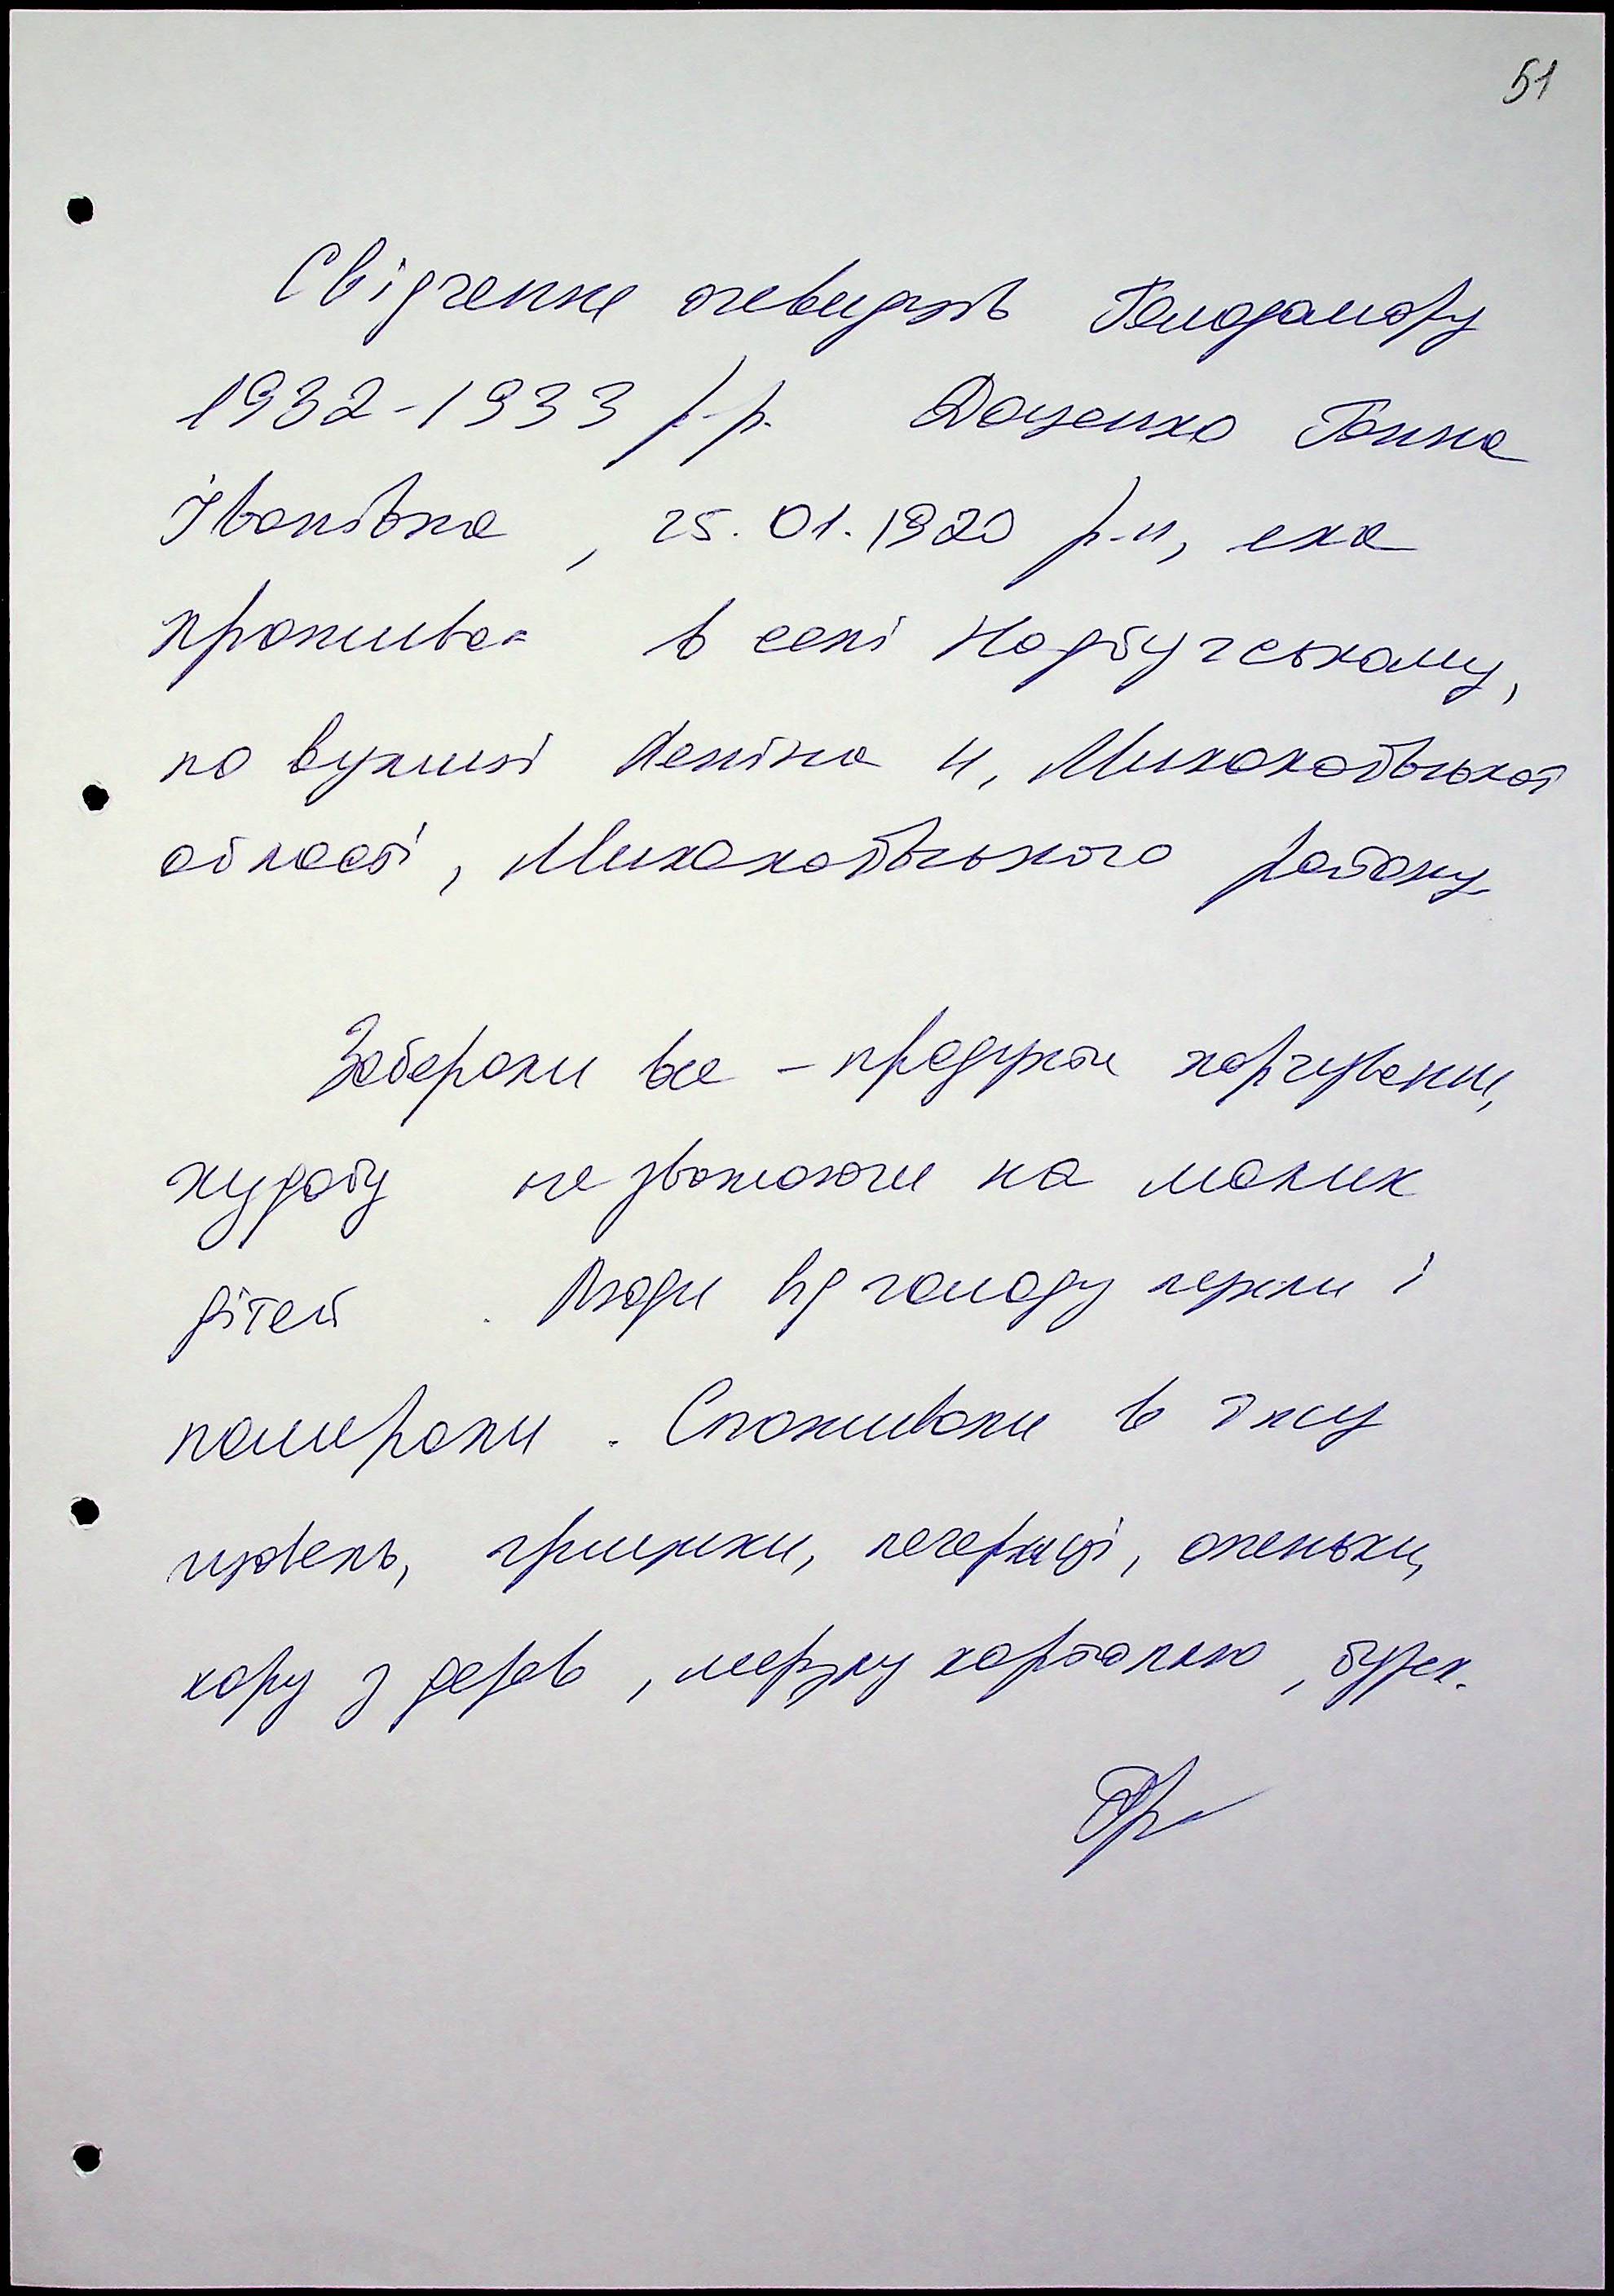 51
Свідчення очевидців Голодомору
1932-1933 р.р. Доценко Ганна
Іванівна, 25.01.1920 р.н, яка
проживає в селі Надбугському,
по вулиці Леніна 4, Миколаївської
області, Миколаївського району
Забирали все - продукти харчування,
худобу не зважаючи на малих
дітей. Люди від голоду пухли і
помирали. Споживали в їжу
щавель, грицики, печериці, опеньки,
кору з дерев, мерзлу картоплю, буряк.